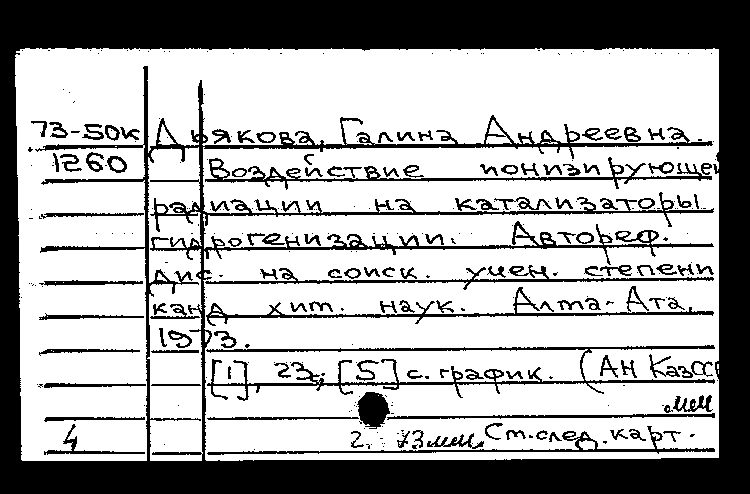 73-50к Дьякова, Галина Андреевна.
1260 Воздействие ионизирующей
радиации на катализаторы
гидрогенизации. Автореф.
дис. на соиск. учен. степени
канд хим. наук. Алма-Ата,
1973.
[1], 23с; [5] с. график. (АН КазССР
4 2. См. след. карт.